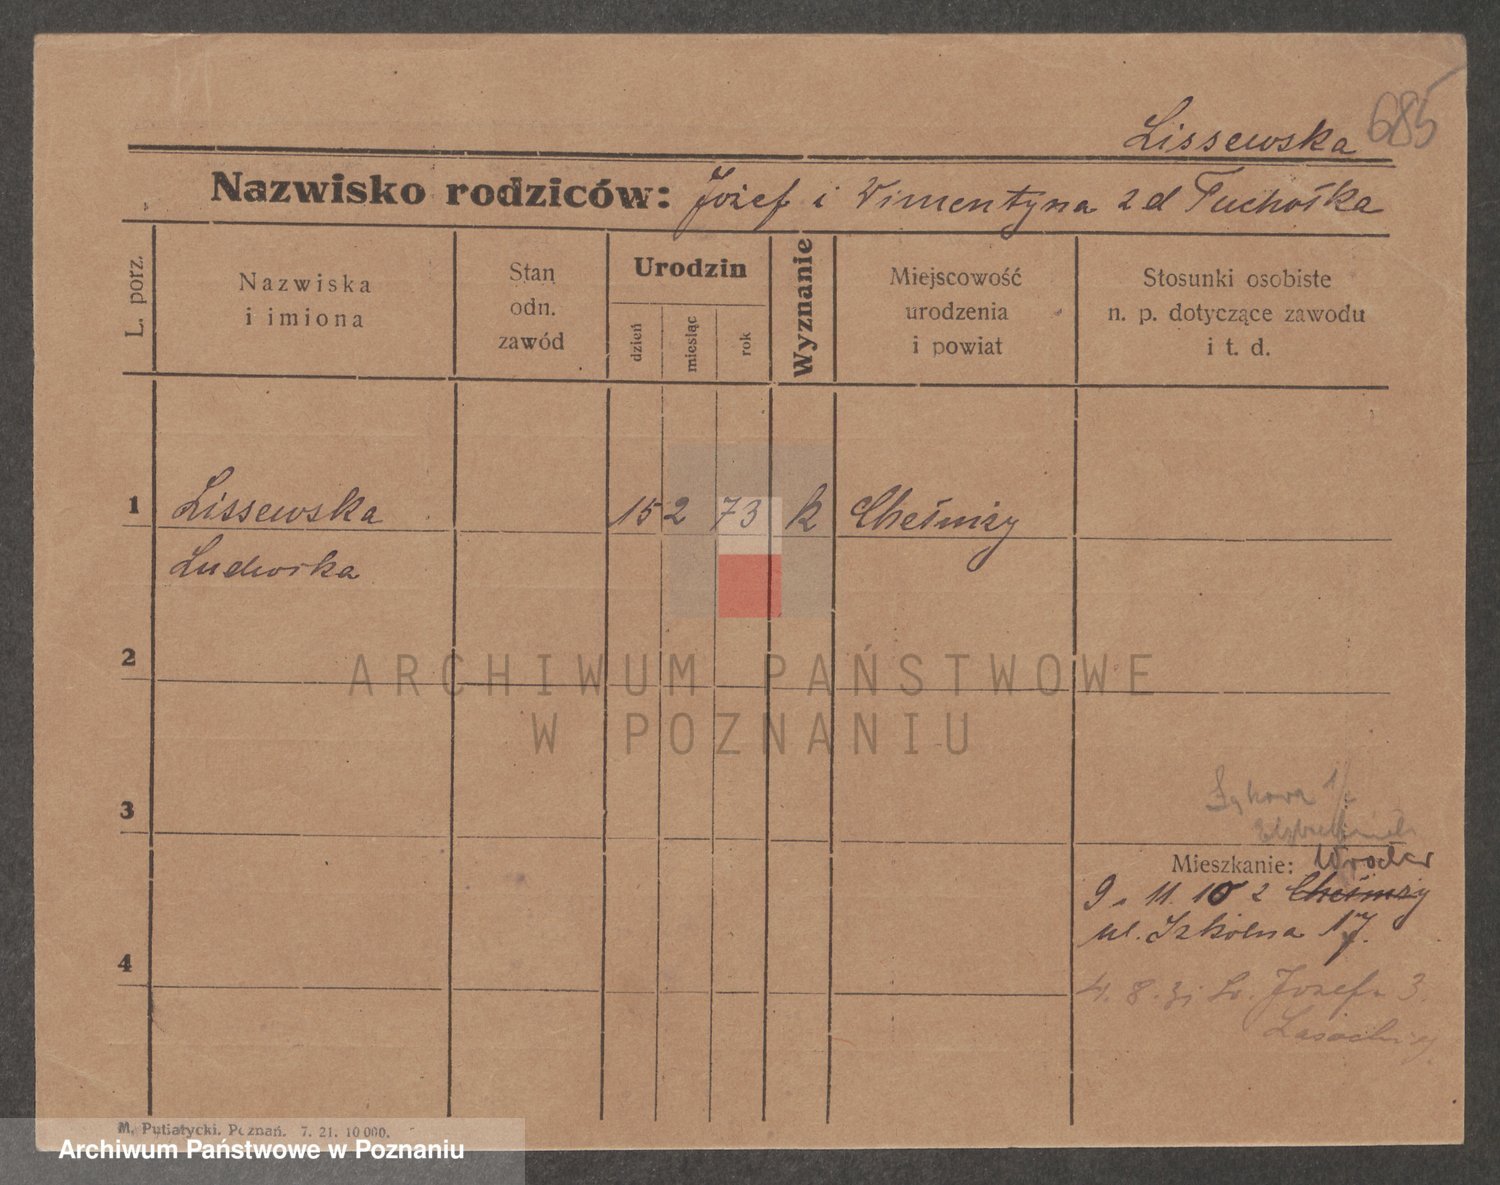 685
Lissewska
Nazwisko rodziców: Józef i Wimentyna z d Tuchołka
L. porz.
Nazwiska
i imiona
Stan
odn.
zawód
Urodzin
dzień
miesiąc
rok
Wyznanie
Miejscowość
urodzenia
i powiat
Stosunki osobiste
n. p. dotyczące zawodu
i t. d.
1 Lissewska 15 2 73 k Chełmży
Ludwika
2
ARCHIWUM PAŃSTWOWE
W POZNANIU
3
Mieszkanie:
9. 11. z Chełmży
ul. Szkolna 17.
4
4. 8. św. Józefa 3.
M. Putiatycki. Poznań. 7. 21. 10 000.
Archiwum Państwowe w Poznaniu